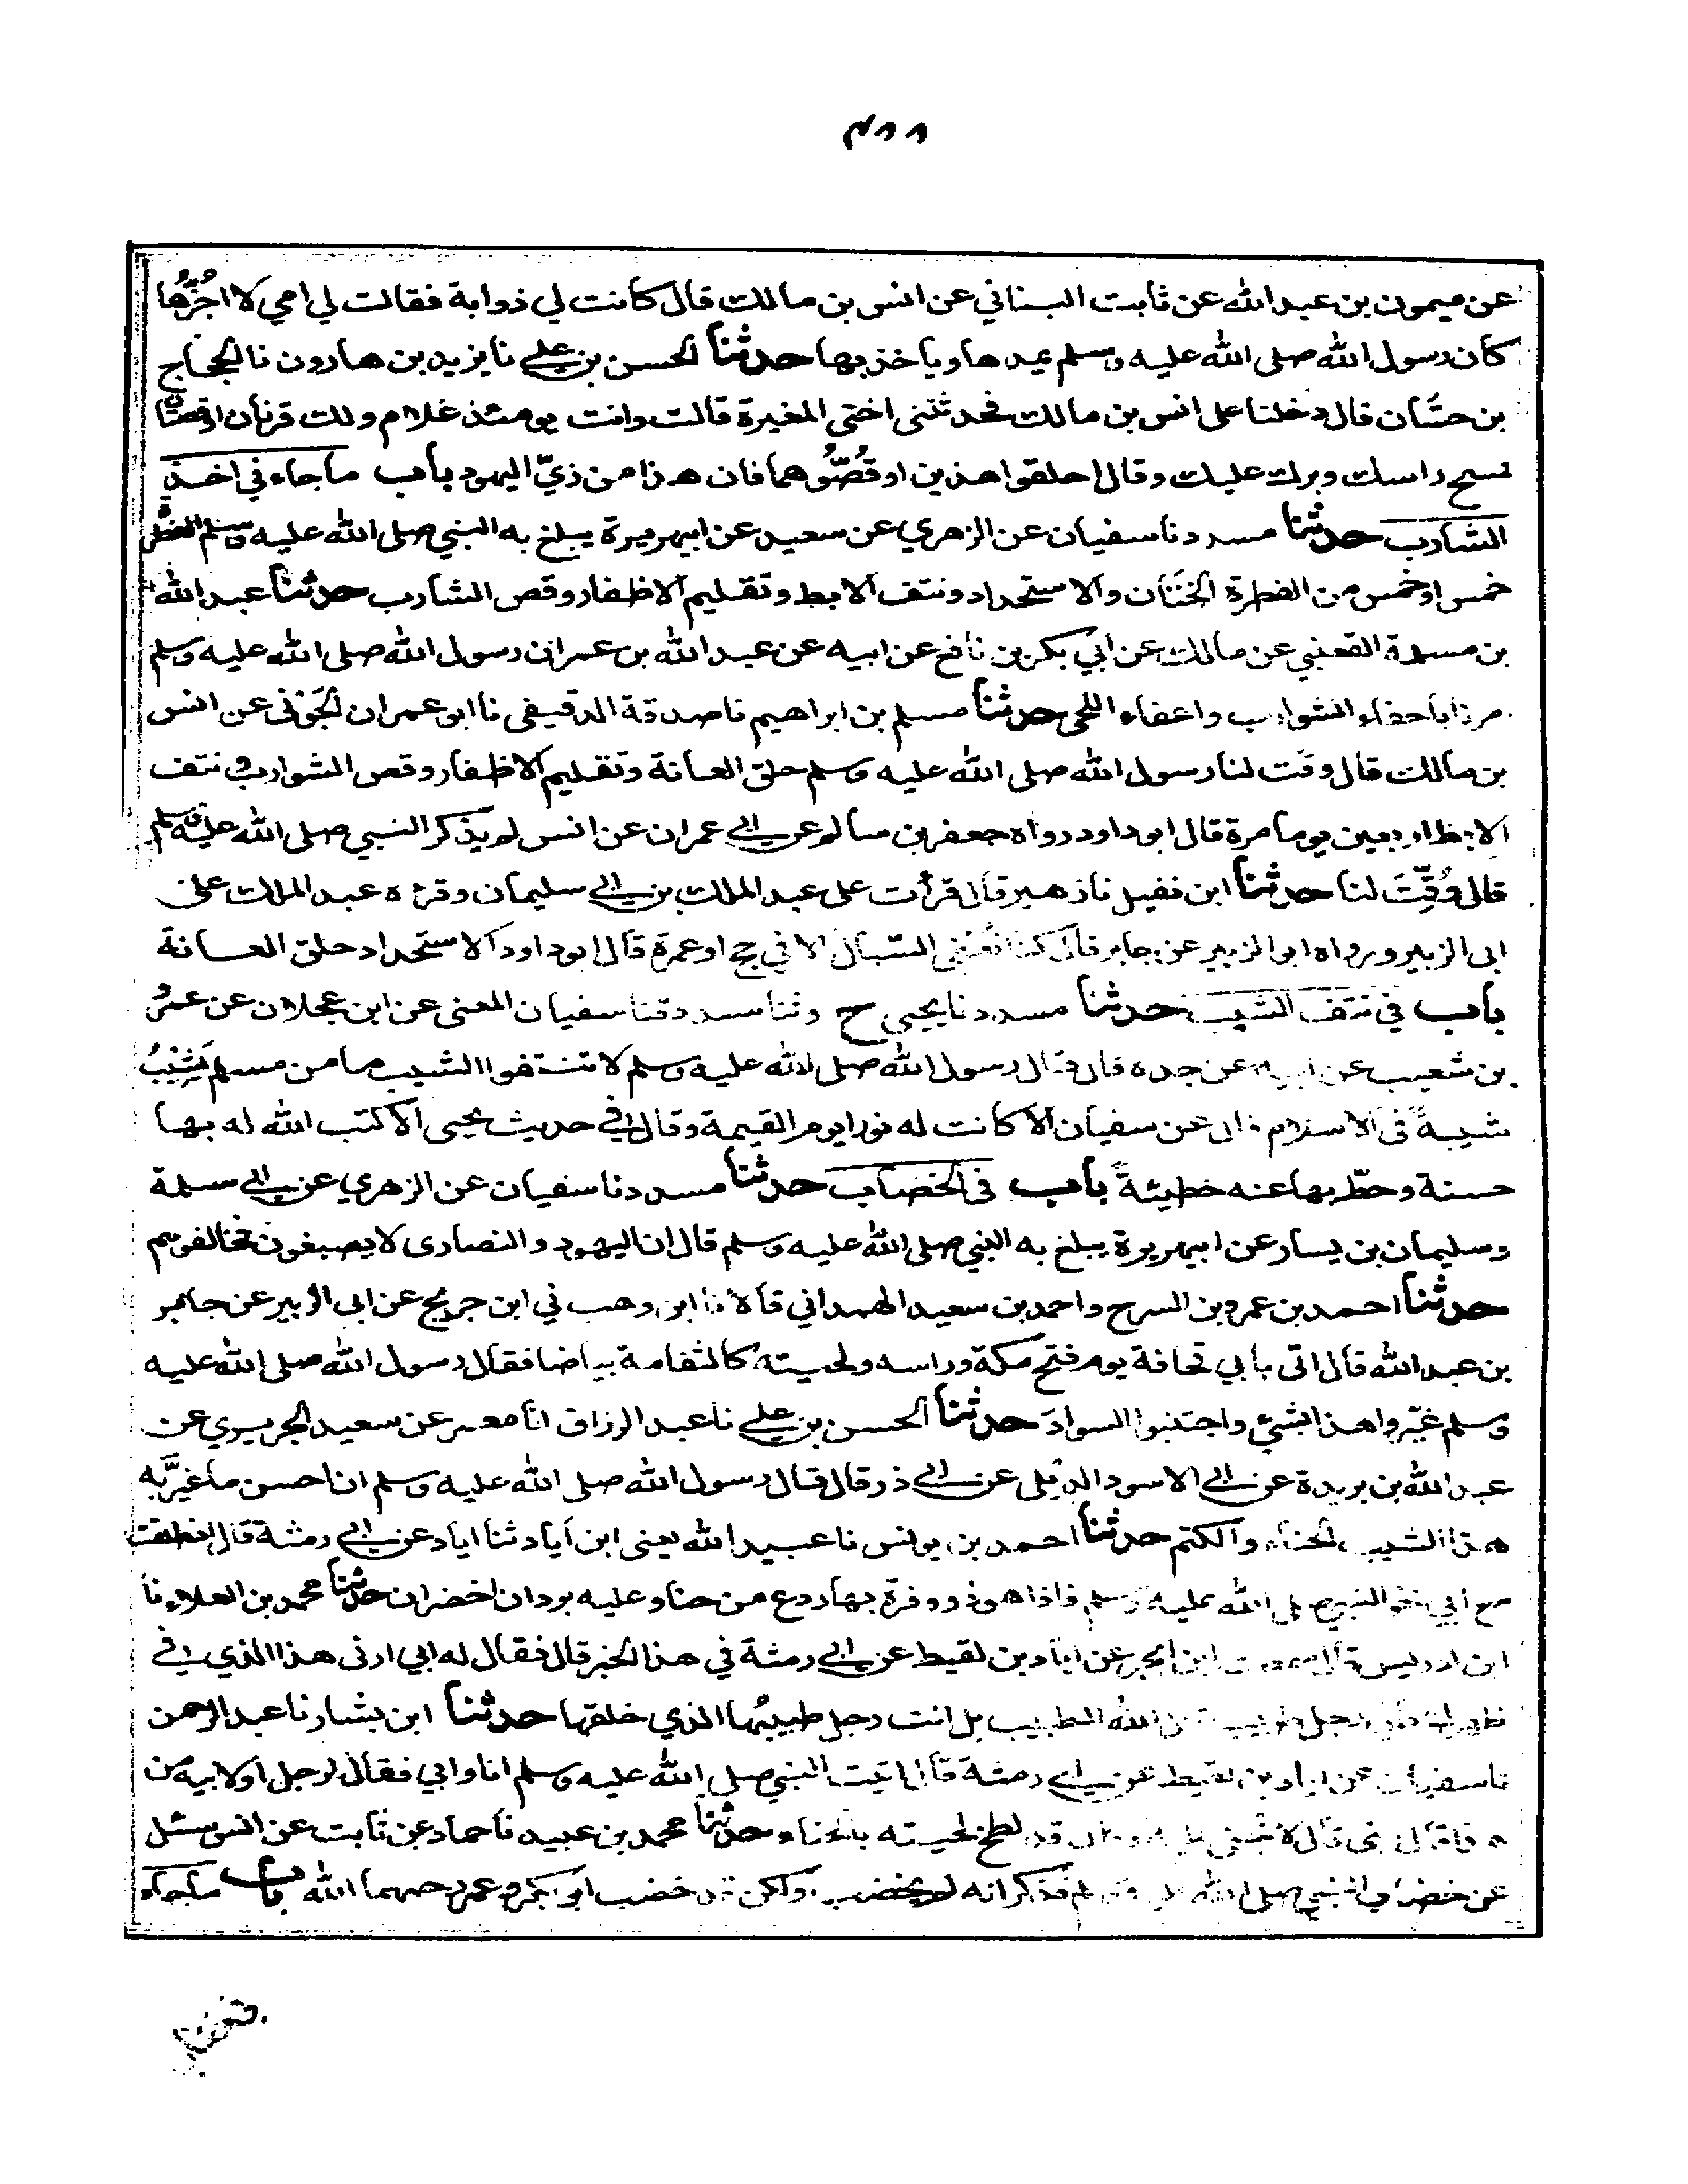 عن ميمون بن عبدالله عن ثابت البناني عن انس بن مالك قال كانت لي ذوابة فقالت لي امي لا اجُزُّها
كان رسول الله صلى الله عليه وسلم يمدها وياخذ بها حدثنا الحسن بن علي نا يزيد بن هارون نا الحجاج
بن حسَّان قال دخلنا على انس بن مالك فحدثتني اختي المغيرة قالت وانت يومئذ غلام ولك قرنان اوقصتان
فمسح راسك وبرك عليك وقال احلقوا هذين او قُصُّوهما فان هذا من ذيّ اليهود باب ماجاء في اخذ
الشارب حدثنا مسدد نا سفيان عن الزهري عن سعيد عن ابيهريرة يبلغ به النبي صلى الله عليه وسلم الفطرة
خمس اوخمس من الفطرة الختان والاستحداد ونتف الابط وتقليم الاظفار وقص الشارب حدثنا عبدالله
بن مسلمة القعنبي عن مالك عن ابي بكر بن نافع عن ابيه عن عبدالله بن عمر ان رسول الله صلى الله عليه وسلم
امر باحفاء الشوارب واعفاء اللحى حدثنا مسلم بن ابراهيم نا صدقة الدقيقي نا ابو عمران الجَوْني عن انس
بن مالك قال وقت لنا رسول الله صلى الله عليه وسلم حلق العانة وتقليم الاظفار وقص الشوارب و نتف
الابط اربعين يوما مرة قال ابو داود رواه جعفر بن سالم عن ابي عمران عن انس لم يذكر النبي صلى الله عليه وسلم
قال وُقِّتَ لنا حدثنا ابن نفيل نا زهير قال قرأت على عبد الملك بن ابي سليمان وقرئه عبد الملك على
ابى الزبير ورواه ابو الزبير عن جابر قال كنا نُعْفِي السّبال الا في حج او عمرة قال ابو داود الاستحداد حلق العانة
باب في نتف الشيب حدثنا مسدد نا يحيى ح وثنا مسدد قنا سفيان المعنى عن ابن عجلان عن عمرو
بن شعيب عن ابيه عن جده قال قال رسول الله صلى الله عليه وسلم لا تنتفوا الشيب ما من مسلم يَشِيْبُ
شيبةً في الاسلام قال عن سفيان الا كانت له نورا يوم القيمة وقال في حديث يحيى الا كتب الله له بها
حسنة وحطّ بها عنه خطيئةً باب في الخضاب حدثنا مسدد نا سفيان عن الزهري عن ابي سلمة
وسليمان بن يسار عن ابيهريرة يبلغ به النبي صلى الله عليه وسلم قال ان اليهود والنصارى لا يصبغون فخالفوهم
حدثنا احمد بن عمرو بن السرح واحمد بن سعيد الهمداني قالا نا ابن وهب ني ابن جريج عن ابى الزبير عن جابر
بن عبدالله قال اتى بابي قحافة يوم فتح مكة وراسه ولحيته كالثغامة بياضا فقال رسول الله صلى الله عليه
وسلم غيّروا هذا بشئ واجتنبوا السواد حدثنا الحسن بن علي نا عبد الرزاق انا معمر عن سعيد الجريري عن
عبدالله بن بريدة عن ابي الاسود الديلى عن ابي ذر قال قال رسول الله صلى الله عليه وسلم ان احسن ما غيّر به
هذا الشيب الحناء والكتم حدثنا احمد بن يونس نا عبيدالله يعنى ابن اياد ثنا اياد عن ابي رمثة قال انطلقت
مع ابي نحو النبي صلى الله عليه وسلم فاذا هو ذو وفرة بها ردع من حنا وعليه بردان اخضران حدثنا محمد بن العلاء نا
ابن ادريس قال سمعت ابن ابجر عن اياد بن لقيط عن ابي رمثة في هذا الخبر قال فقال له ابي ارنى هذا الذي في
ظهرك فاني رجل طبيب قال الله الطبيب بل انت رجل طبيبُها الذي خلقها حدثنا ابن بشار نا عبد الرحمن
نا سفيان عن اياد بن لقيط عن ابي رمثة قال اتيت النبي صلى الله عليه وسلم انا وابي فقال لرجل اولابيه من
هذا قال ابني قال لا تجني عليه وكان قد لطخ لحيته بالحناء حدثنا محمد بن عبيد نا حماد عن ثابت عن انس سئل
عن خضاب النبي صلى الله عليه وسلم فذكر انه لم يخضب ولكن قد خضب ابو بكر وعمر رحمهما الله باب ماجاء